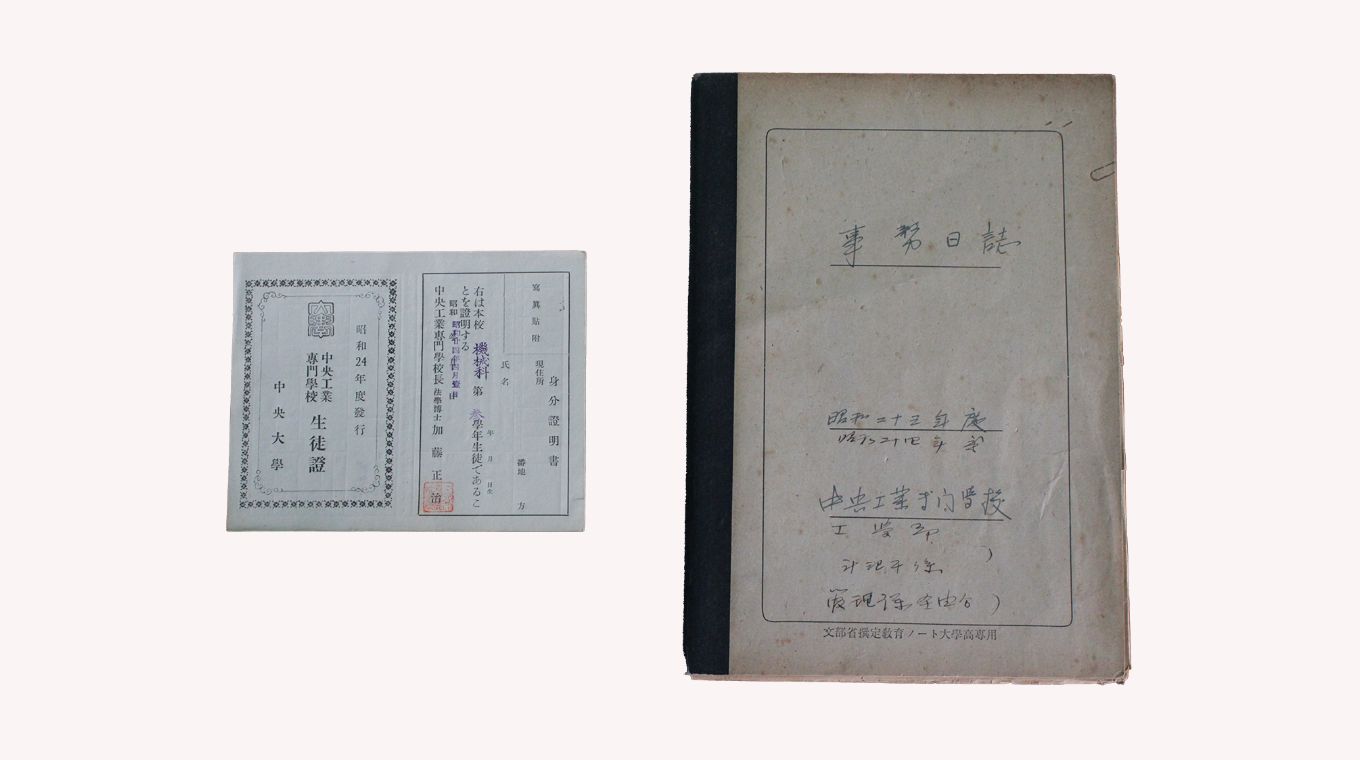 昭和24年度發行
中央工業
專門學校
生徒證
中央大學
身分證明書
寫眞貼附
現住所
番地
方
氏名
年 月 日生
右は本校 機械科 第 參 學年生徒であるこ
とを證明する
昭和
昭和廿四年四月壹日
中央工業專門學校長 法學博士 加藤正治
事務日誌
昭和二十三年度
昭和二十四年度
中央工業専門学校
工学部
文部省撰定教育ノート大學高専用